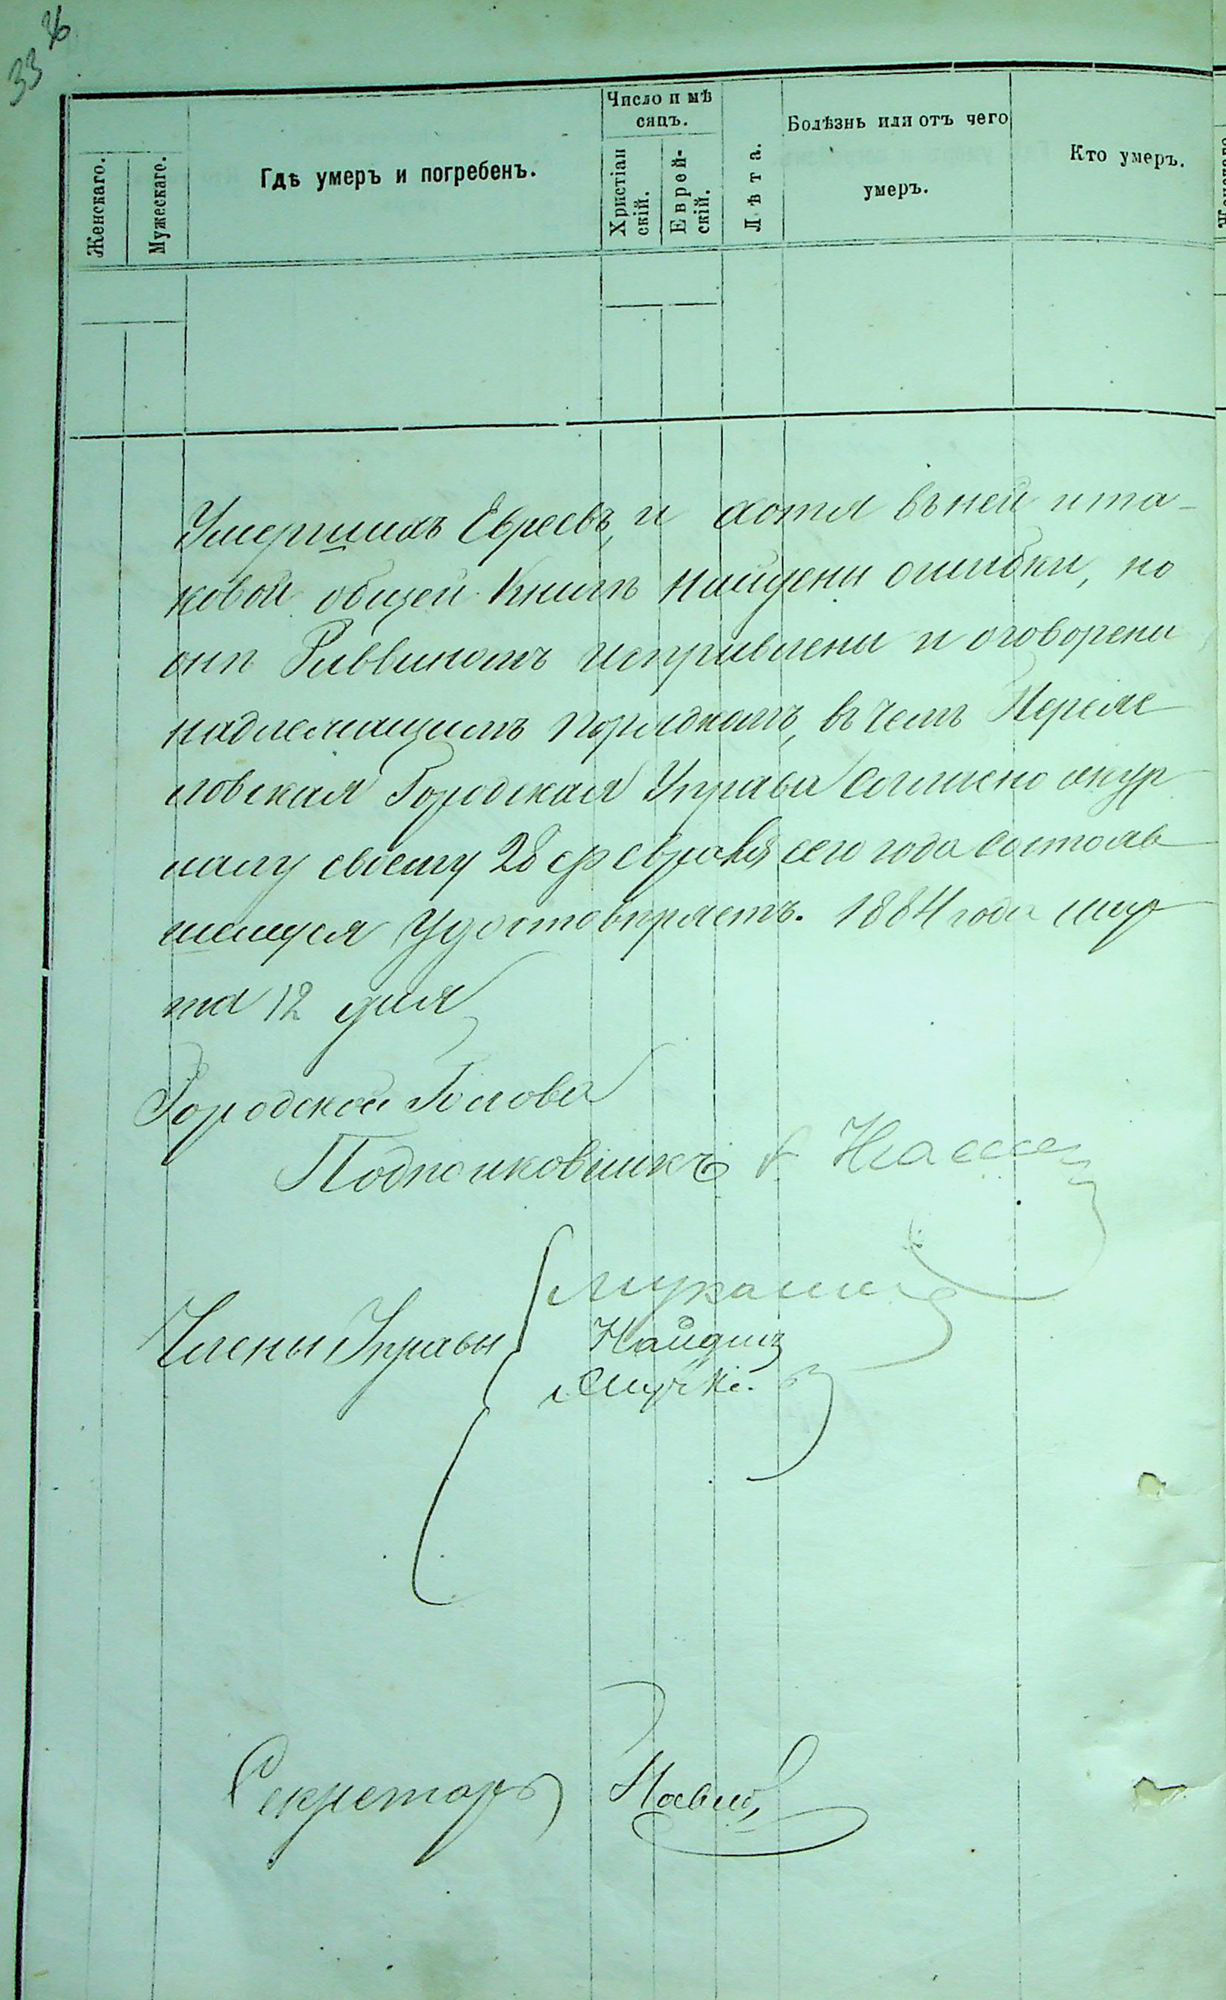 33 36
Женскаго.
Мужескаго.
Гдѣ умеръ и погребенъ.
Число и мѣ
сяцъ.
Христіан
скій.
Еврей-
скій.
Лѣта.
Болѣзнь или отъ чего
умеръ.
Кто умеръ.
Умершихъ Евреевъ, и хотя въ ней и та-
ковой общей Книгѣ найдены ошибки, но
онѣ Раввиномъ исправлены и оговорены
надлежащимъ порядкомъ, въ чемъ Переяс
ловская Городская Управа согласно жур
налу своему 28 февраля сего года состояв
шемуся удостовѣряетъ. 1884 года мар
та 12 дня
Городской Голова
Подполковникъ
Члены Управы
Найдинъ
Секретарь